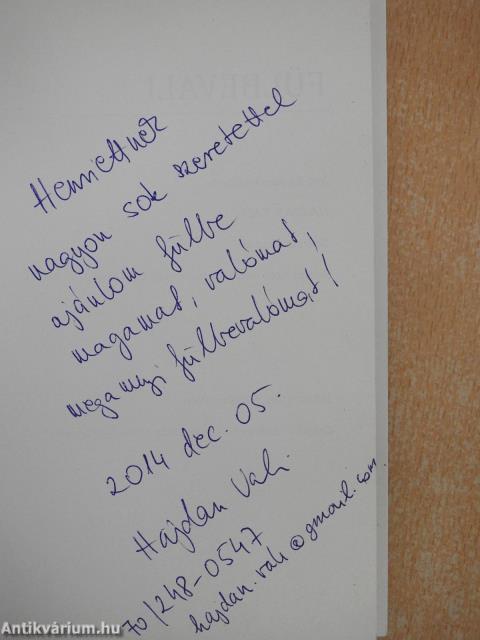 Henriettnek
nagyon sok szeretettel
ajánlom fülbe
magamat, valómat,
megannyi fülbevalómat!
2014 dec. 05.
Hajdan Vali
70/248-0547
hajdan.vali@gmail.com
Antikvárium.hu